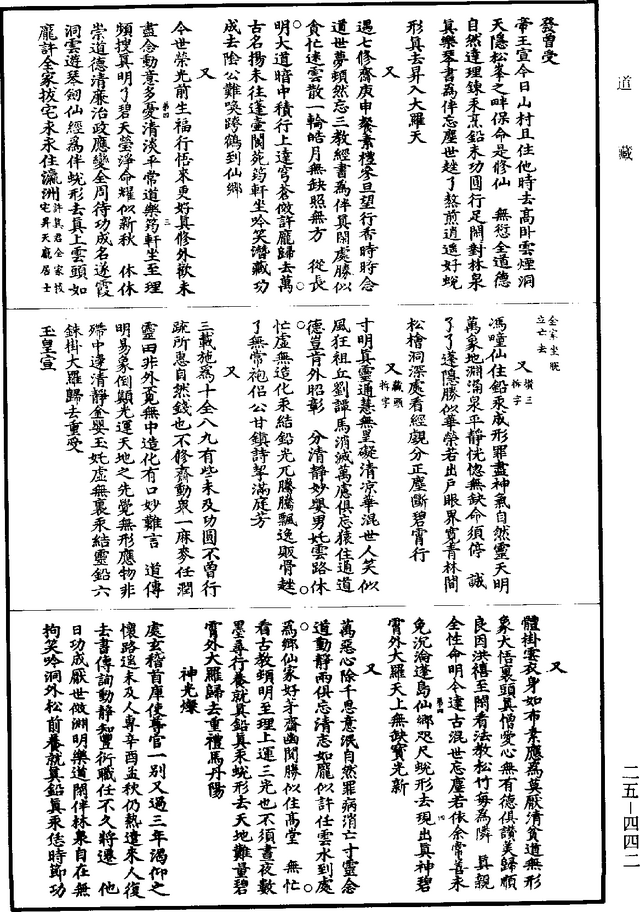 道藏
發曾受
帝王宣今日山村且住他時去高卧雲煙洞
天隱松峯之畔保命是修仙　無愆全道德
自然達理鍊汞烹鉛功圓行足閑對林泉
真樂琴書為伴忘塵世趖了熬煎逍遙好蛻
形真去昇入大羅天
又
遇七修齋庚申餐素禮家旦望行香時時念
道世夢頓然忘三教經書為伴真閑處勝似
貪忙迷雲散一輪皓月無缺照無方　從長
明大道暗中積行上達穹蒼做許龐歸去萬
古名揚未往蓬壺閬苑筠軒坐吟笑潛藏功
成去陰公難喚跨鶴到仙鄉
又
今世榮光前生福行悟來更好真修外歡未
盡念動意多憂清淡平常道樂筠軒坐至理
頻搜真明了碧天瑩淨命耀似新秋　休休
崇道德清廉治政應變全周待功成名遂霞
洞雲遊琴劒仙經為伴蛻形去真上雲頭如
龐許全家拔宅永永住瀛洲許真君全家拔宅昇天龐居士
全家坐脫立亡去
又
馮瞳仙住鉛汞成形罪盡神氣自然靈天明
萬象地淵涌泉平靜恍惚無缺命須停　誠
了了達隱勝似華榮若出戶眼界寬青林間
松檜洞深處看經觀分正塵斷碧霄行
又藏頭拆字
寸明真靈通慧無罣礙清凉華混世人笑似
風狂祖丘劉譚馬消滅萬慮俱忘猿住通道
德豈肯外昭彰　分清靜妙嬰男奼雲路休
忙虛無造化汞結鉛光兀騰騰飄逸厭骨趖
了無常袍侶公甘鎮詩挈滿庭芳
又
三載施為十全八九有些未及功圓不曾行
疏所惠自然錢也不修齋動衆一麻麥任潤
靈田非外覓無中造化有口妙難言　道傳
明易象倒顛光運天地之先覺無形應物非
殢中邊清靜金嬰玉奼虛無裏汞結靈鉛六
銖掛大羅歸去重受
玉皇宣
又
體掛雲衣身如布素應為莫厭清貧道無形
象大悟裏頭真憎愛心無有德俱讚美歸順
良因洪禧至閑看法教松竹每為隣　真親
全性命明今達古混世忘塵若依余常善永
免沉淪蓬島仙鄉咫尺蛻形去現出真神碧
霄外大羅天上無缺寶光新
又
萬惡心除千思意泯自然罪病消亡寸靈念
道動靜兩俱忘清志如龐似許任雲水到處
為鄉仙家好茅齋幽閑勝似住高堂　無忙
看古教頻明至理上運三光也不須晝夜數
墨尋行養就真鉛真汞蛻形去天地難量碧
霄外大羅歸去重禮馬丹陽
神光燦
處玄稽首庫使尊官一別又過三年渴仰之
懷路遥未及人專辛酉孟秋仍熱遣來人復
去書傳詢動靜知豐衍職任不久將遷　他
日功成厭世倣淵明樂道閑伴林泉自在無
拘笑吟洞外松前養就真鉛真汞恁時節功
二五—四四二